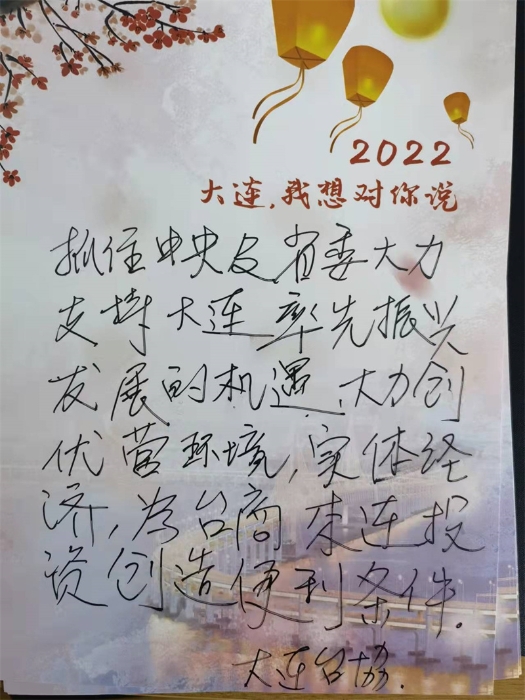 2022
大连,我想对你说
抓住中央及省委大力
支持大连率先振兴
发展的机遇,大力创
优营环境,实体经
济,为台商来连投
资创造便利条件.
大连台协.